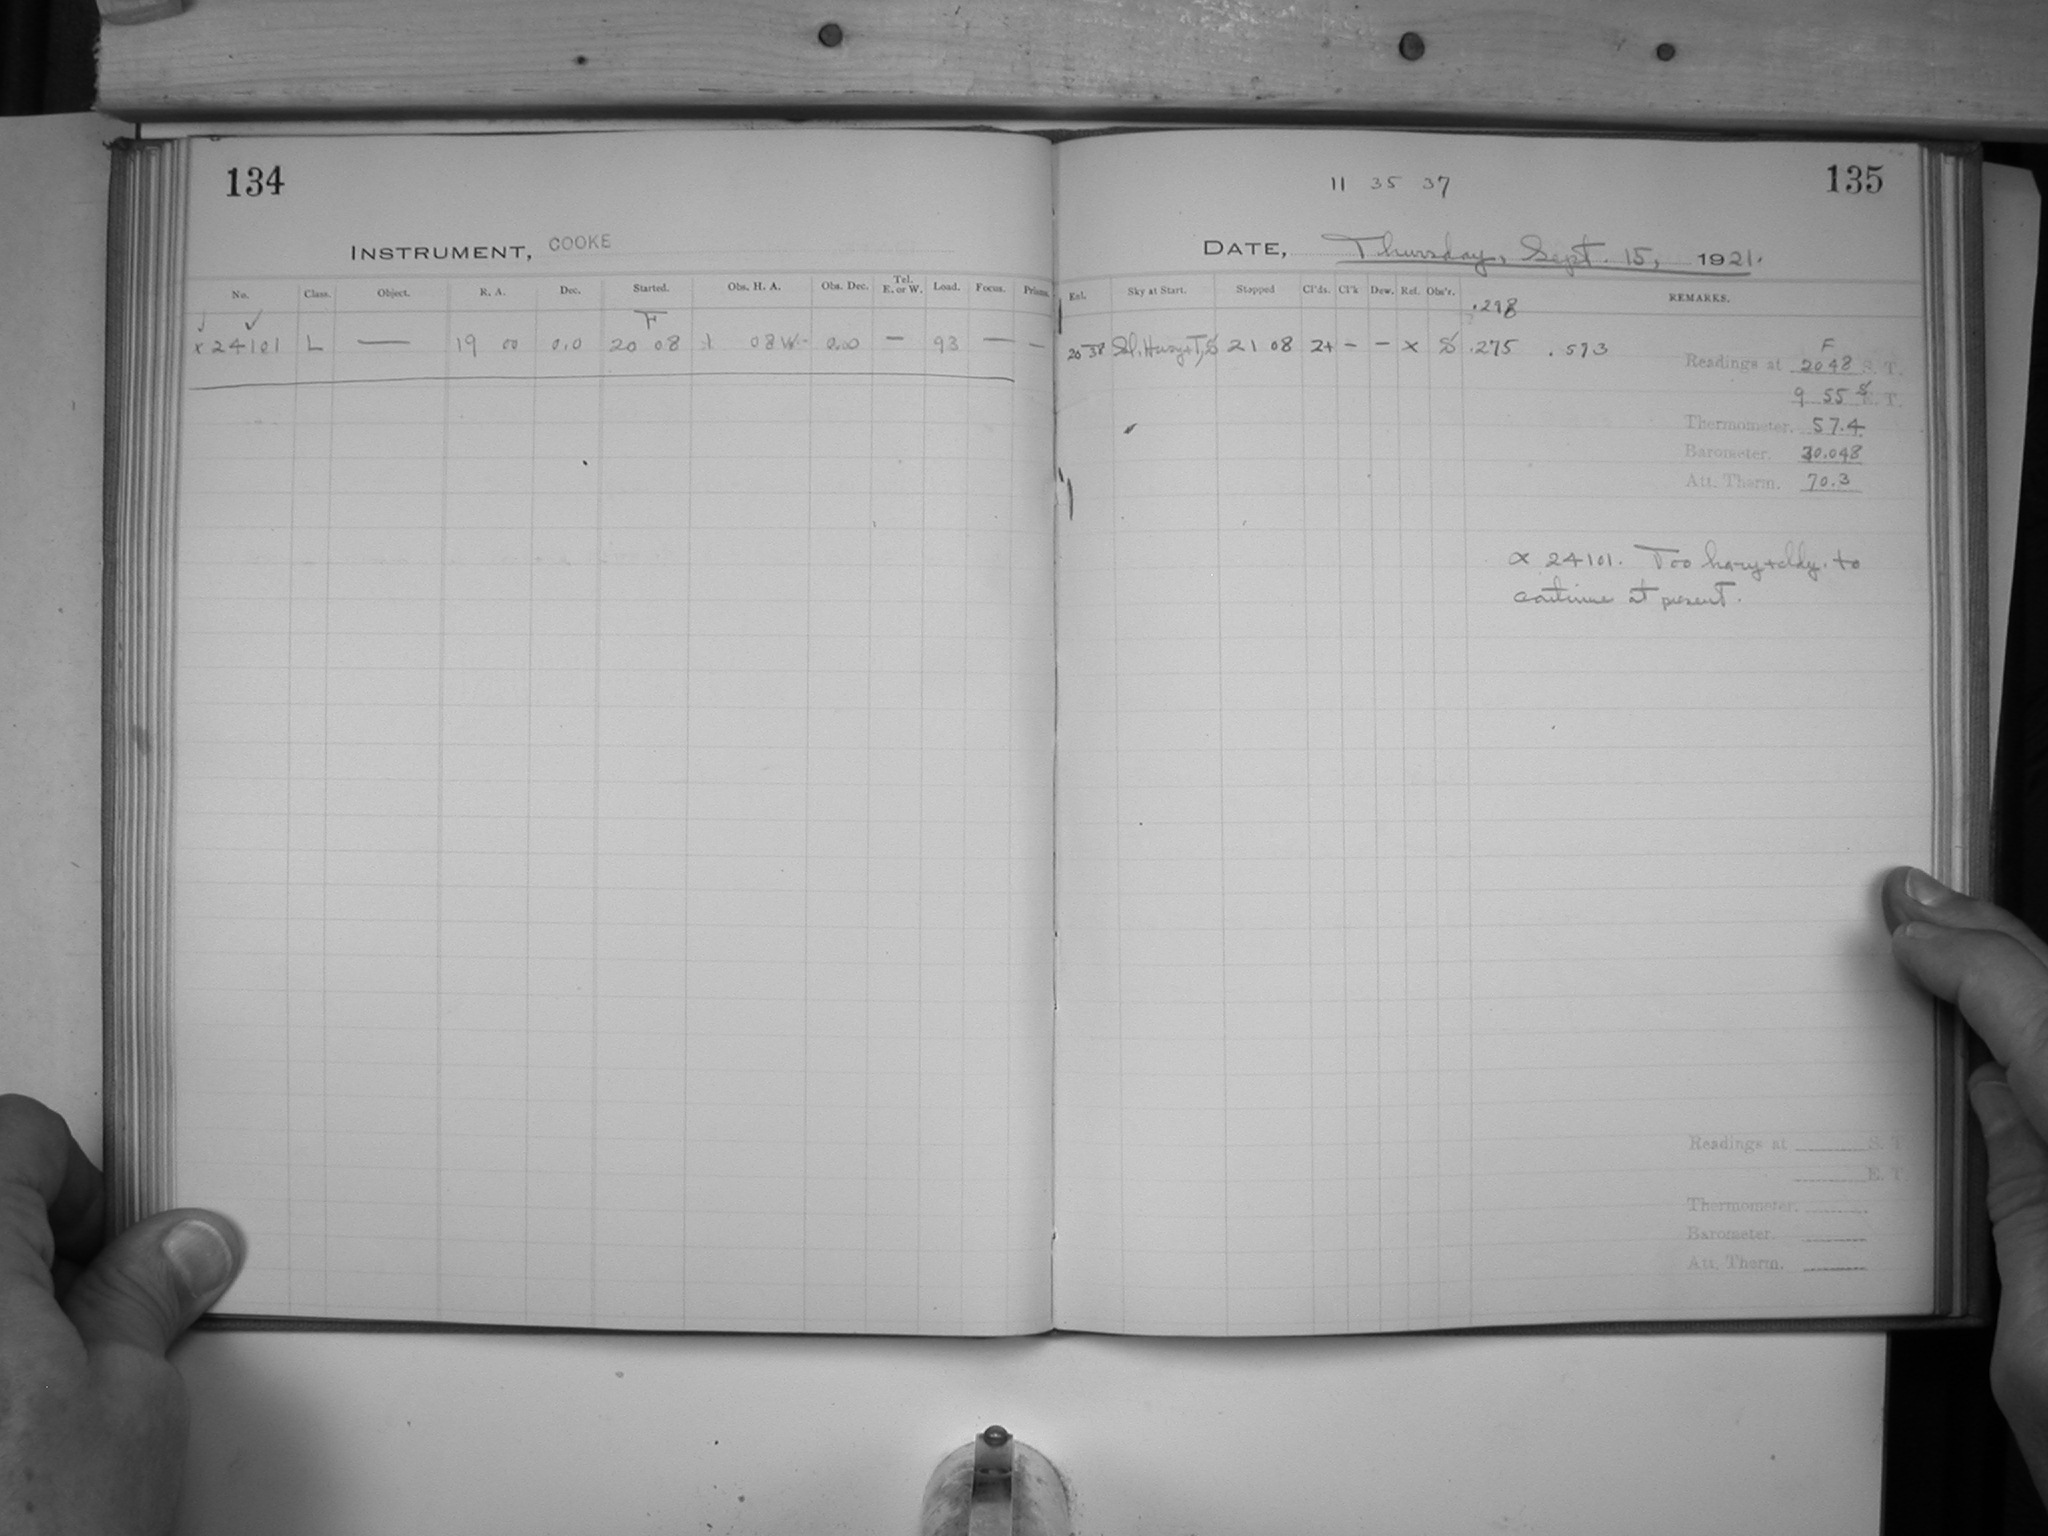 134
INSTRUMENT, COOKE
No. Class. Object. R. A. Dec. Started. Obs. H. A. Obs. Dec. Tel. E. or W. Load. Focus. Prisms.
F
x 24101 L — 19 00 0.0 20 08 1 08 W. 0.00 — 93 — —
11 35 37
135
DATE, Thursday, Sept. 15, 1921.
Ext. Sky at Start. Stopped Cl'ds. Cl'k Dew. Ref. Obs'r. REMARKS.
.298
20 38 Sl. Hazy 21 08 2+ — — x .275 .573
F
Readings at 2048 S. T.
9 55 E. T.
Thermometer. 57.4
Barometer. 30.048
Att. Therm. 70.3
α 24101. Too hazy + cldy. to
continue at present.
Readings at S. T.
E. T.
Thermometer.
Barometer.
Att. Therm.